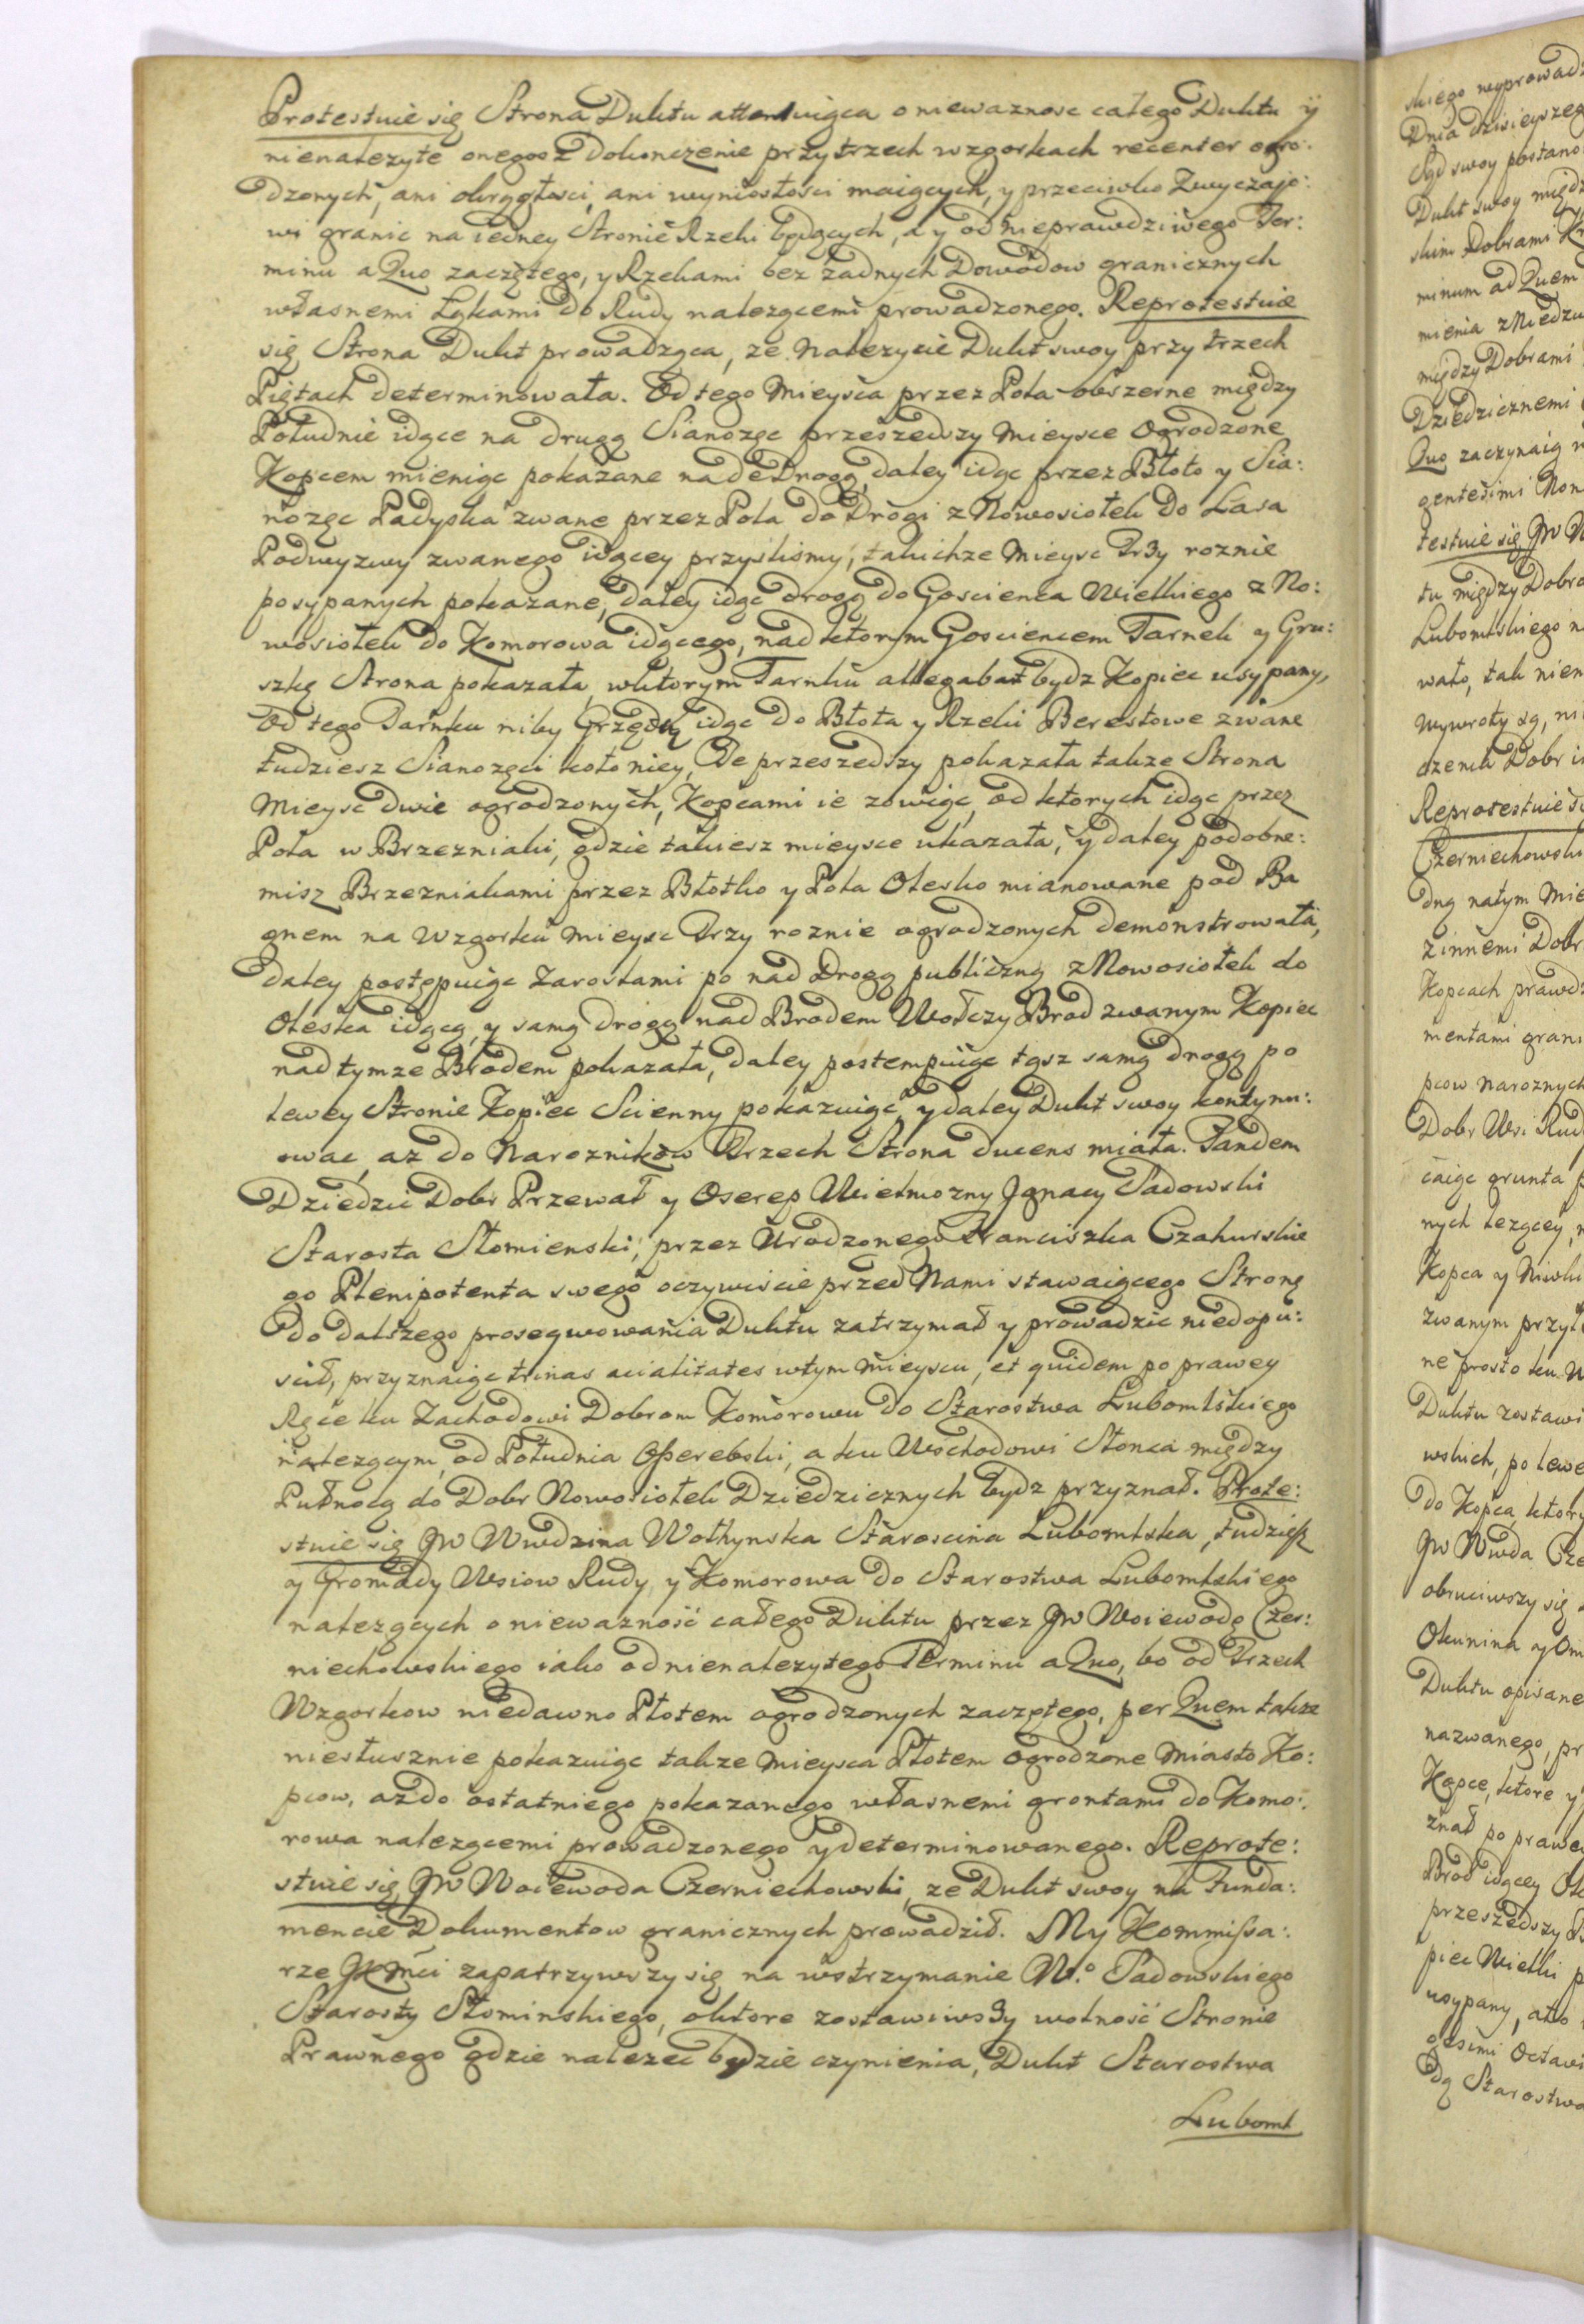 Protestuie się Strona Duktu attenduiąca o niewaznosc całego Duktu ÿ
nienalezyte onegosz dokonczenie przy trzech wzgorkach recenter ogro:
dzonych, ani okrągłosci, ani wyniosłosci maiących, y przeciwko Zwyczaio:
wi granic na iedney Stronie Rzeki będących, a y od nieprawdziwego Ter:
minu a Quo zaczętego, y Rzekami bez żadnych Dowodow granicznych
własnemi Łąkami do Rudy nalezącemi prowadzonego. Reprotestuie
się Strona Dukt prowadząca, ze Nalezycie Dukt swoy przy trzech
Piętach determinowała. Od tego Mieysca przez Pola obszerne między
Południe idące na drugą Sianozęc przeszedszy Mieysce Ogrodzone
Kopcem mieniąc pokazane nade Drogą, daley idąc przez Błoto y Sia:
nozęc Padyska zwane przez Pola do Drogi z Nowosiołek do Lasa
Podwyzwy zwanego idącey przyśliśmy, takichze Mieysc Trzy roznie
posypanych pokazane, daley idąc drogą do Goscienca Wielkiego z No:
wosiołek do Komorowa idącego, nad ktorym Goscieńcem Tarnek y Gru:
szkę Strona pokazała, wktorym Tarnku allegabat bydz Kopiec usypany,
Od tego Tarnku niby Grzędką idąc do Błota y Rzeki Berestowe zwane
tudziesz Sianozęci koło niey, Te przeszedszy pokazała takze Strona
Mieysc dwie ogrodzonych, Kopcami ie zowiąc, od ktorych idąc przez
Pola w Brzezniaki, gdzie takiesz mieysce ukazała, y daley podobne:
misz Brzezniakami przez Błotko y Pola Olesko mianowane pod Ba
gnem na Wzgorku Mieysc Trzy roznie ogrodzonych demonstrowała,
daley postępuiąc Zaroslami po nad Drogą publiczną z Nowosiołek do
Oleska idącą, y samą drogą nad Brodem Wołczy Brod zwanym Kopiec
nad tymze Brodem pokazała, daley postempuiąc tąsz samą drogą po
lewey Stronie Kopiec Scienny pokazuiąc, y daley Dukt swoy kontynu:
owac, az do Naroznikow Trzech Strona ducens miała. Tandem
Dziedzic Dobr Przewał y Oserep Wielmozny Jgnacy Sadowski
Starosta Słomienski, przez Urodzonego Franciszka Czahurskie
go Plenipotenta swego oczywiscie przed Nami stawaiącego Stronę
do dalszego prosequowania Duktu zatrzymał y prowadzic niedopu:
scił, przyznaiąc trinas acialitates wtym Mieyscu, et quidem po prawey
Ręce ku Zachodowi Dobrom Komorowu do Starostwa Lubomlskiego
nalezącym, od Południa Osserebski, a ku Wschodowi Słonca między
Pułnocą do Dobr Nowosiołek Dziedzicznych bydz przyznał. Prote:
stuie się JW Wwdzina Wołhynska Staroscina Lubomlska, tudziesz
y Gromady Wsiow Rudy y Komorowa do Starostwa Lubomlskiego
nalezących o niewazność całego Duktu przez JW Woiewodę Czer:
niechowskiego iako od nienalezytego Terminu a Quo, bo od Trzech
Wzgorkow niedawno Płotem ogrodzonych zaczętego, per Quem takze
niesłusznie pokazuiąc takze Mieysca Płotem Ogrodzone Miasto Ko:
pcow, az do ostatniego pokazanego własnemi grontami do Komo:
rowa nalezącemi prowadzonego y determinowanego. Reprote:
stuie się JW Woiewoda Czerniechowski, ze Dukt swoy na Funda:
mencie Dokumentow granicznych prowadził. My Kommissa:
rze JKMci zapatrzywszy się na wstrzymanie W.º Sadowskiego
Starosty Słominskiego, oktore zostawiwszy wolność Stronie
Prawnego gdzie nalezec będzie czynienia, Dukt Starostwa
Luboml

skiego wyprowadz
Dnia dzisieyszeg
Sąd swoy postano
Dukt swoy międz
skim Dobrami
minum ad Quem
mienia z Miedzu
między Dobrami
Dziedzicznemi
Quo zaczynaią
gentesimi Non
testuie się JW
tu między Dobra
Lubomlskiego
wało, tak nien
wywroty są,
dzenia Dobr
Reprotestuie
Czerniechowski
dną natym Mie
z innemi Dobr
Kopcach prawdz
mentami grani
pcow naroznych
Dobr Wsi Rud
caiąc grunta
nych lezącey,
Kopca y Niwki
zwanym przyt
ne prosto ku
Duktu zostawi
wskich, po lewe
do Kopca, ktory
JW Wwda Cze
obruciwszy się
Okunina y Om
Duktu opisane
nazwanego, pr
Kopce, ktore y
znał po prawe
Brod idącey
przeszedszy
piec Wielki
usypany, ato
gesimi Octavi
dą Starostwa